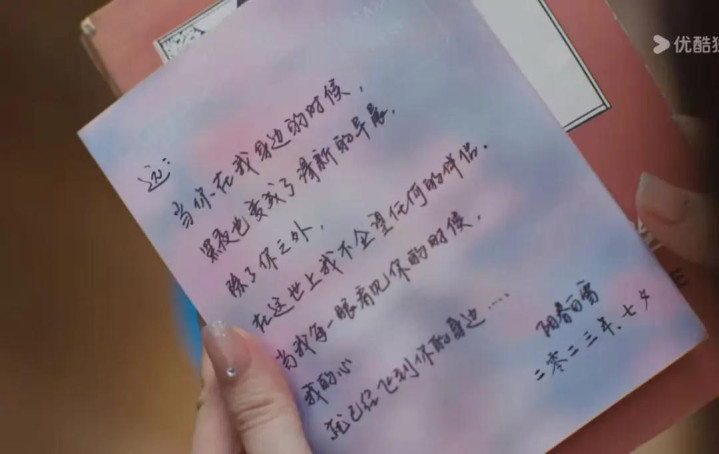 远：
当你在我身边的时候，
黑夜也变成了清新的早晨，
除了你之外，
在这世上我不企望任何的伴侣。
当我每一眼看见你的时候，
我的心
就已经飞到你的身边……
阳春白雪
二零二三年、七夕
优酷